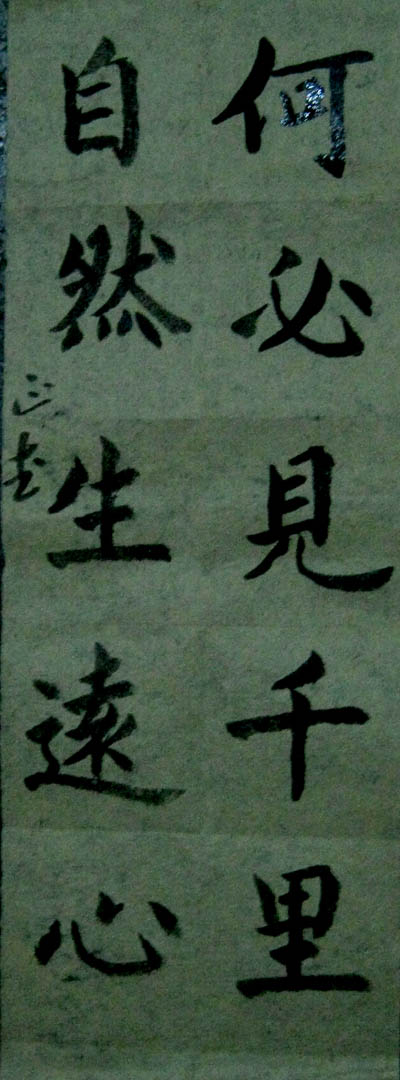 何必見千里
自然生遠心